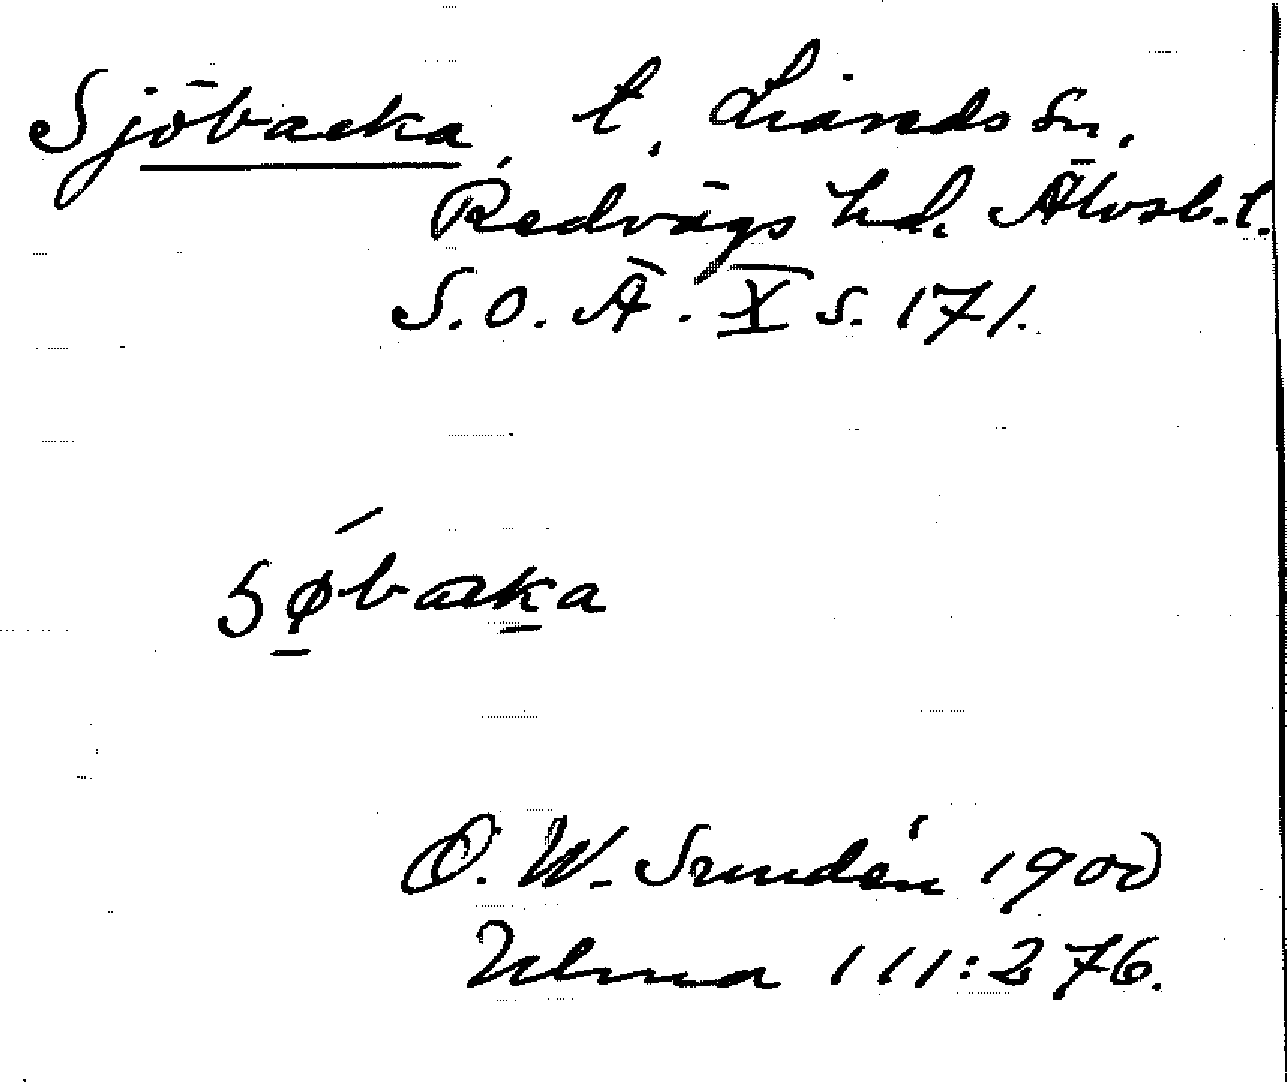 Sjöbacka t. Liareds sn,
Redvägs hd. Älvsb. l.
S.O.Ä. X s. 171.
Søbacka
O. W. Sundén 1900
Ulma 111:276.